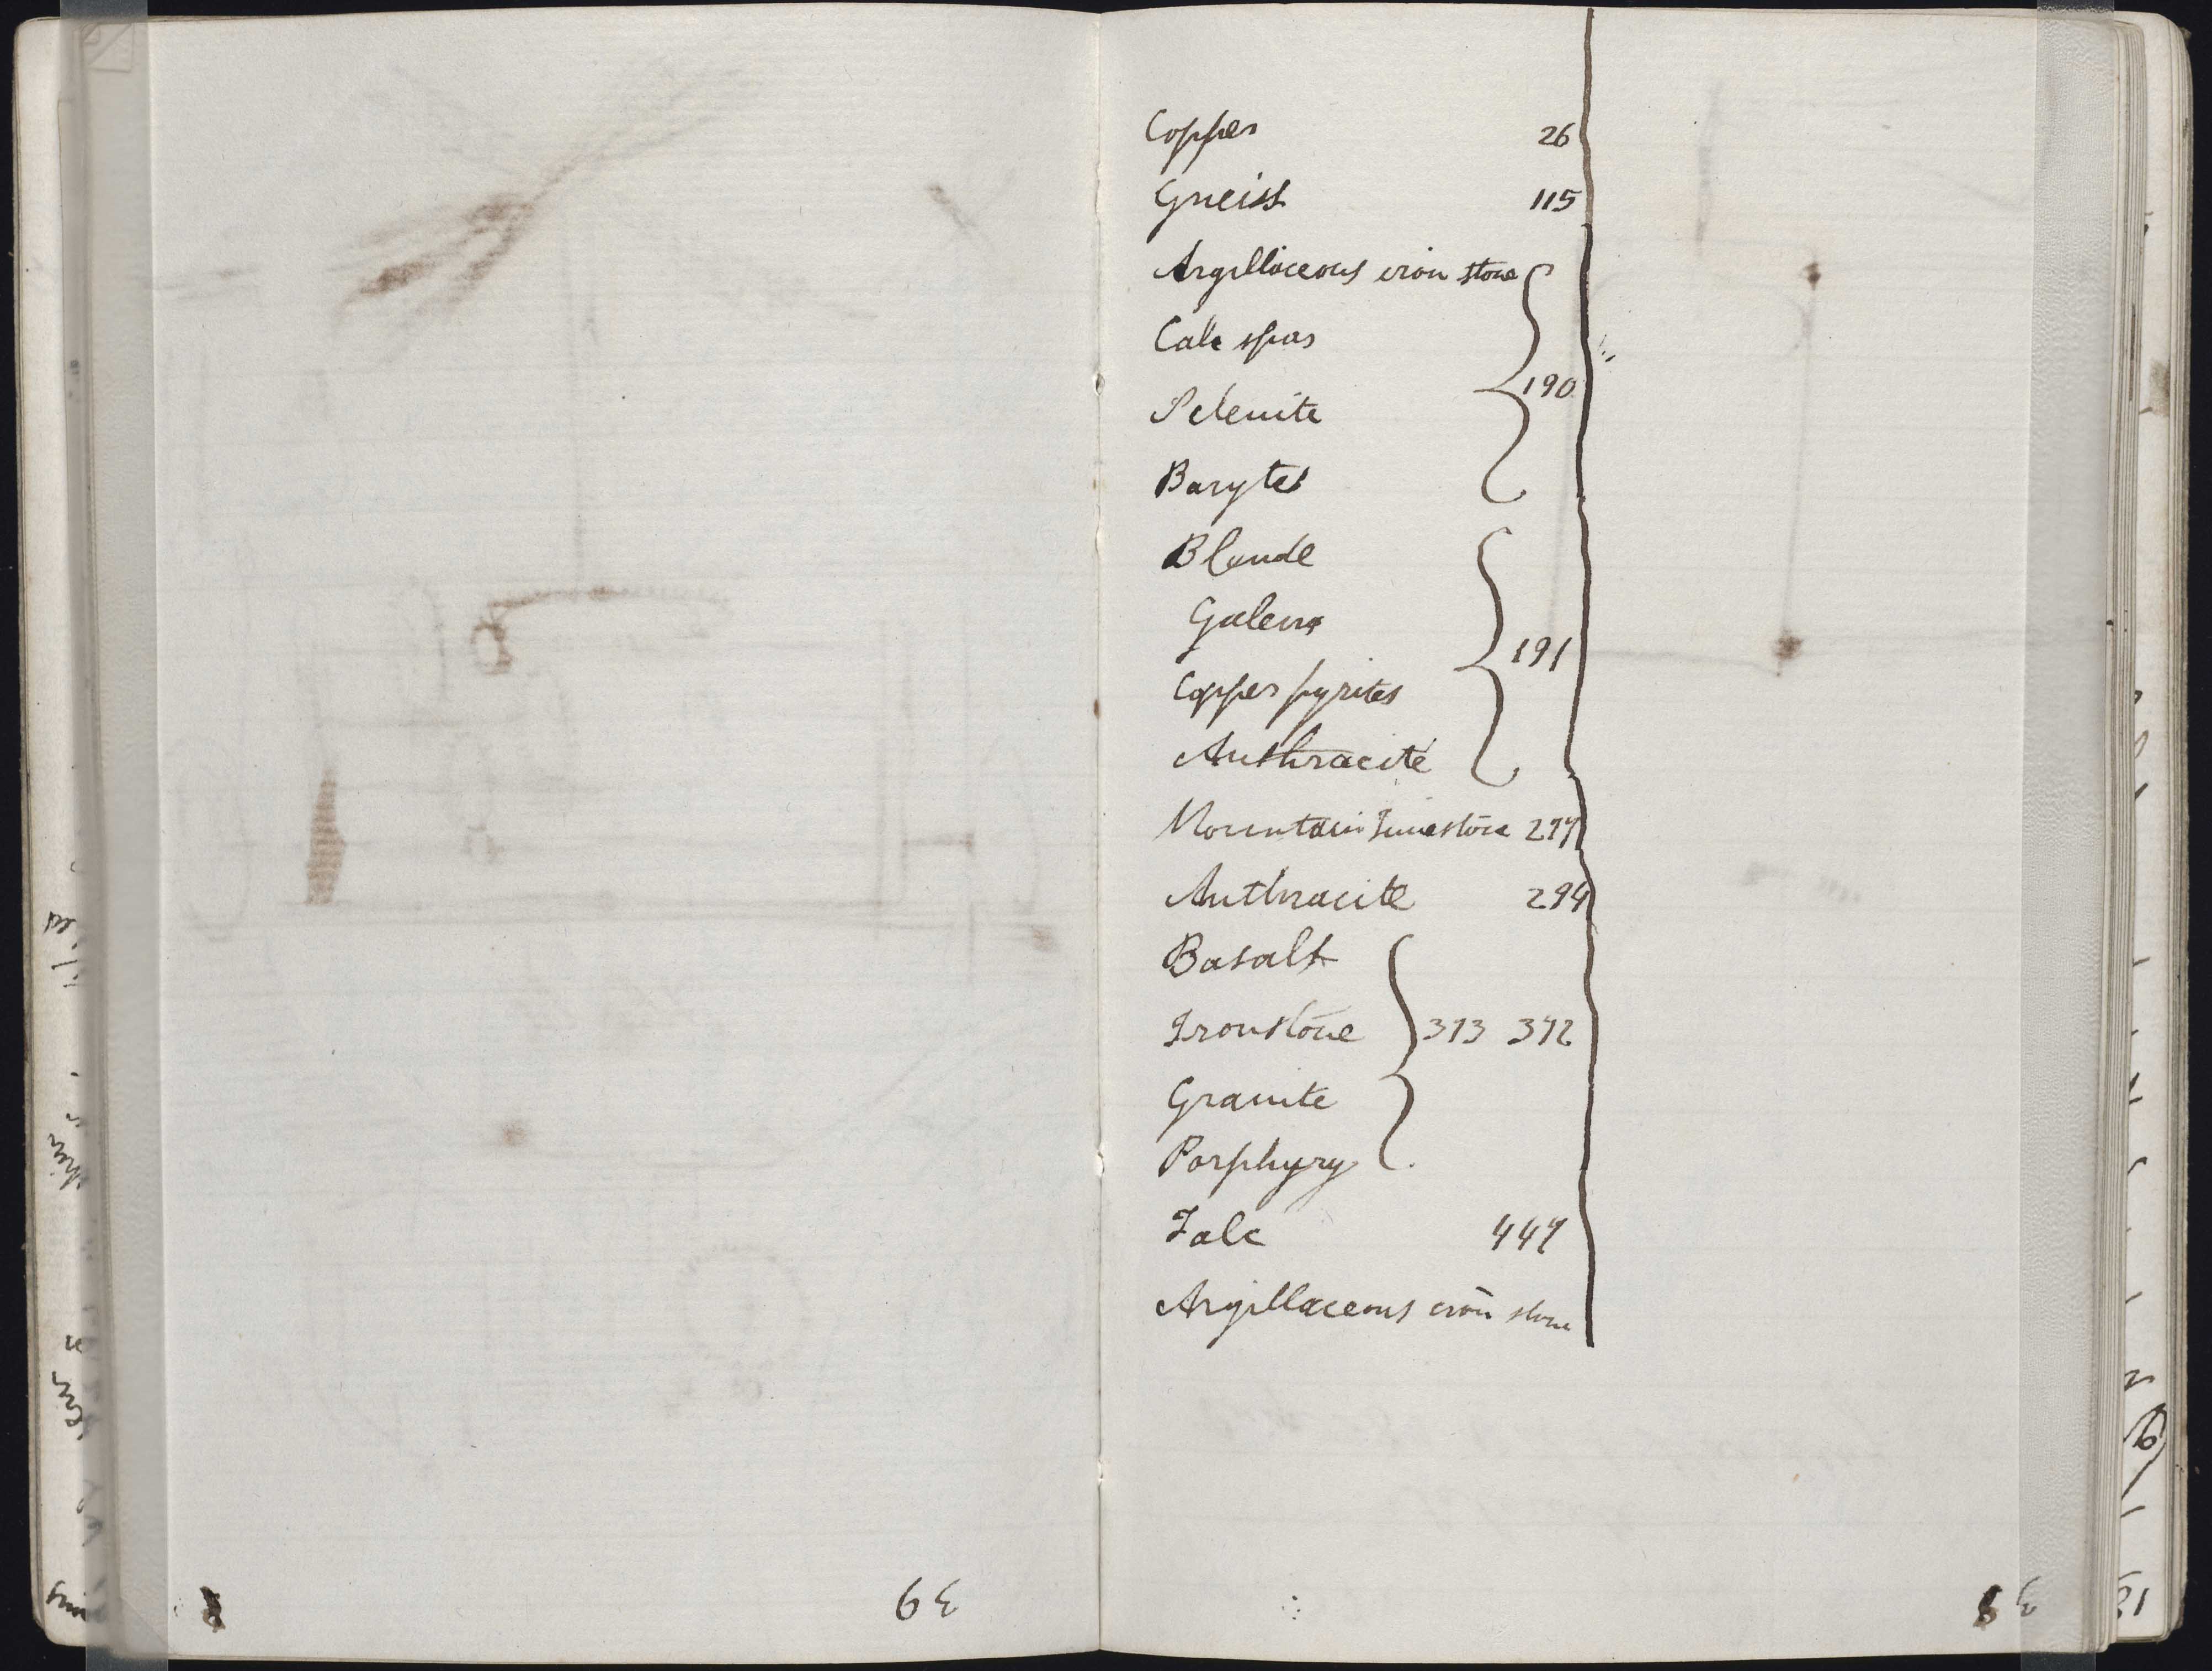 Copper 26
Gneiss 115
Argillaceous iron stone
Calc spar
Selenite 190
Barytes
Blende
Galena
Copper pyrites 191
Anthracite
Mountain limestone 297
Anthracite 294
Basalt
Ironstone 373 372
Granite
Porphyry
Talc 447
Argillaceous iron stone